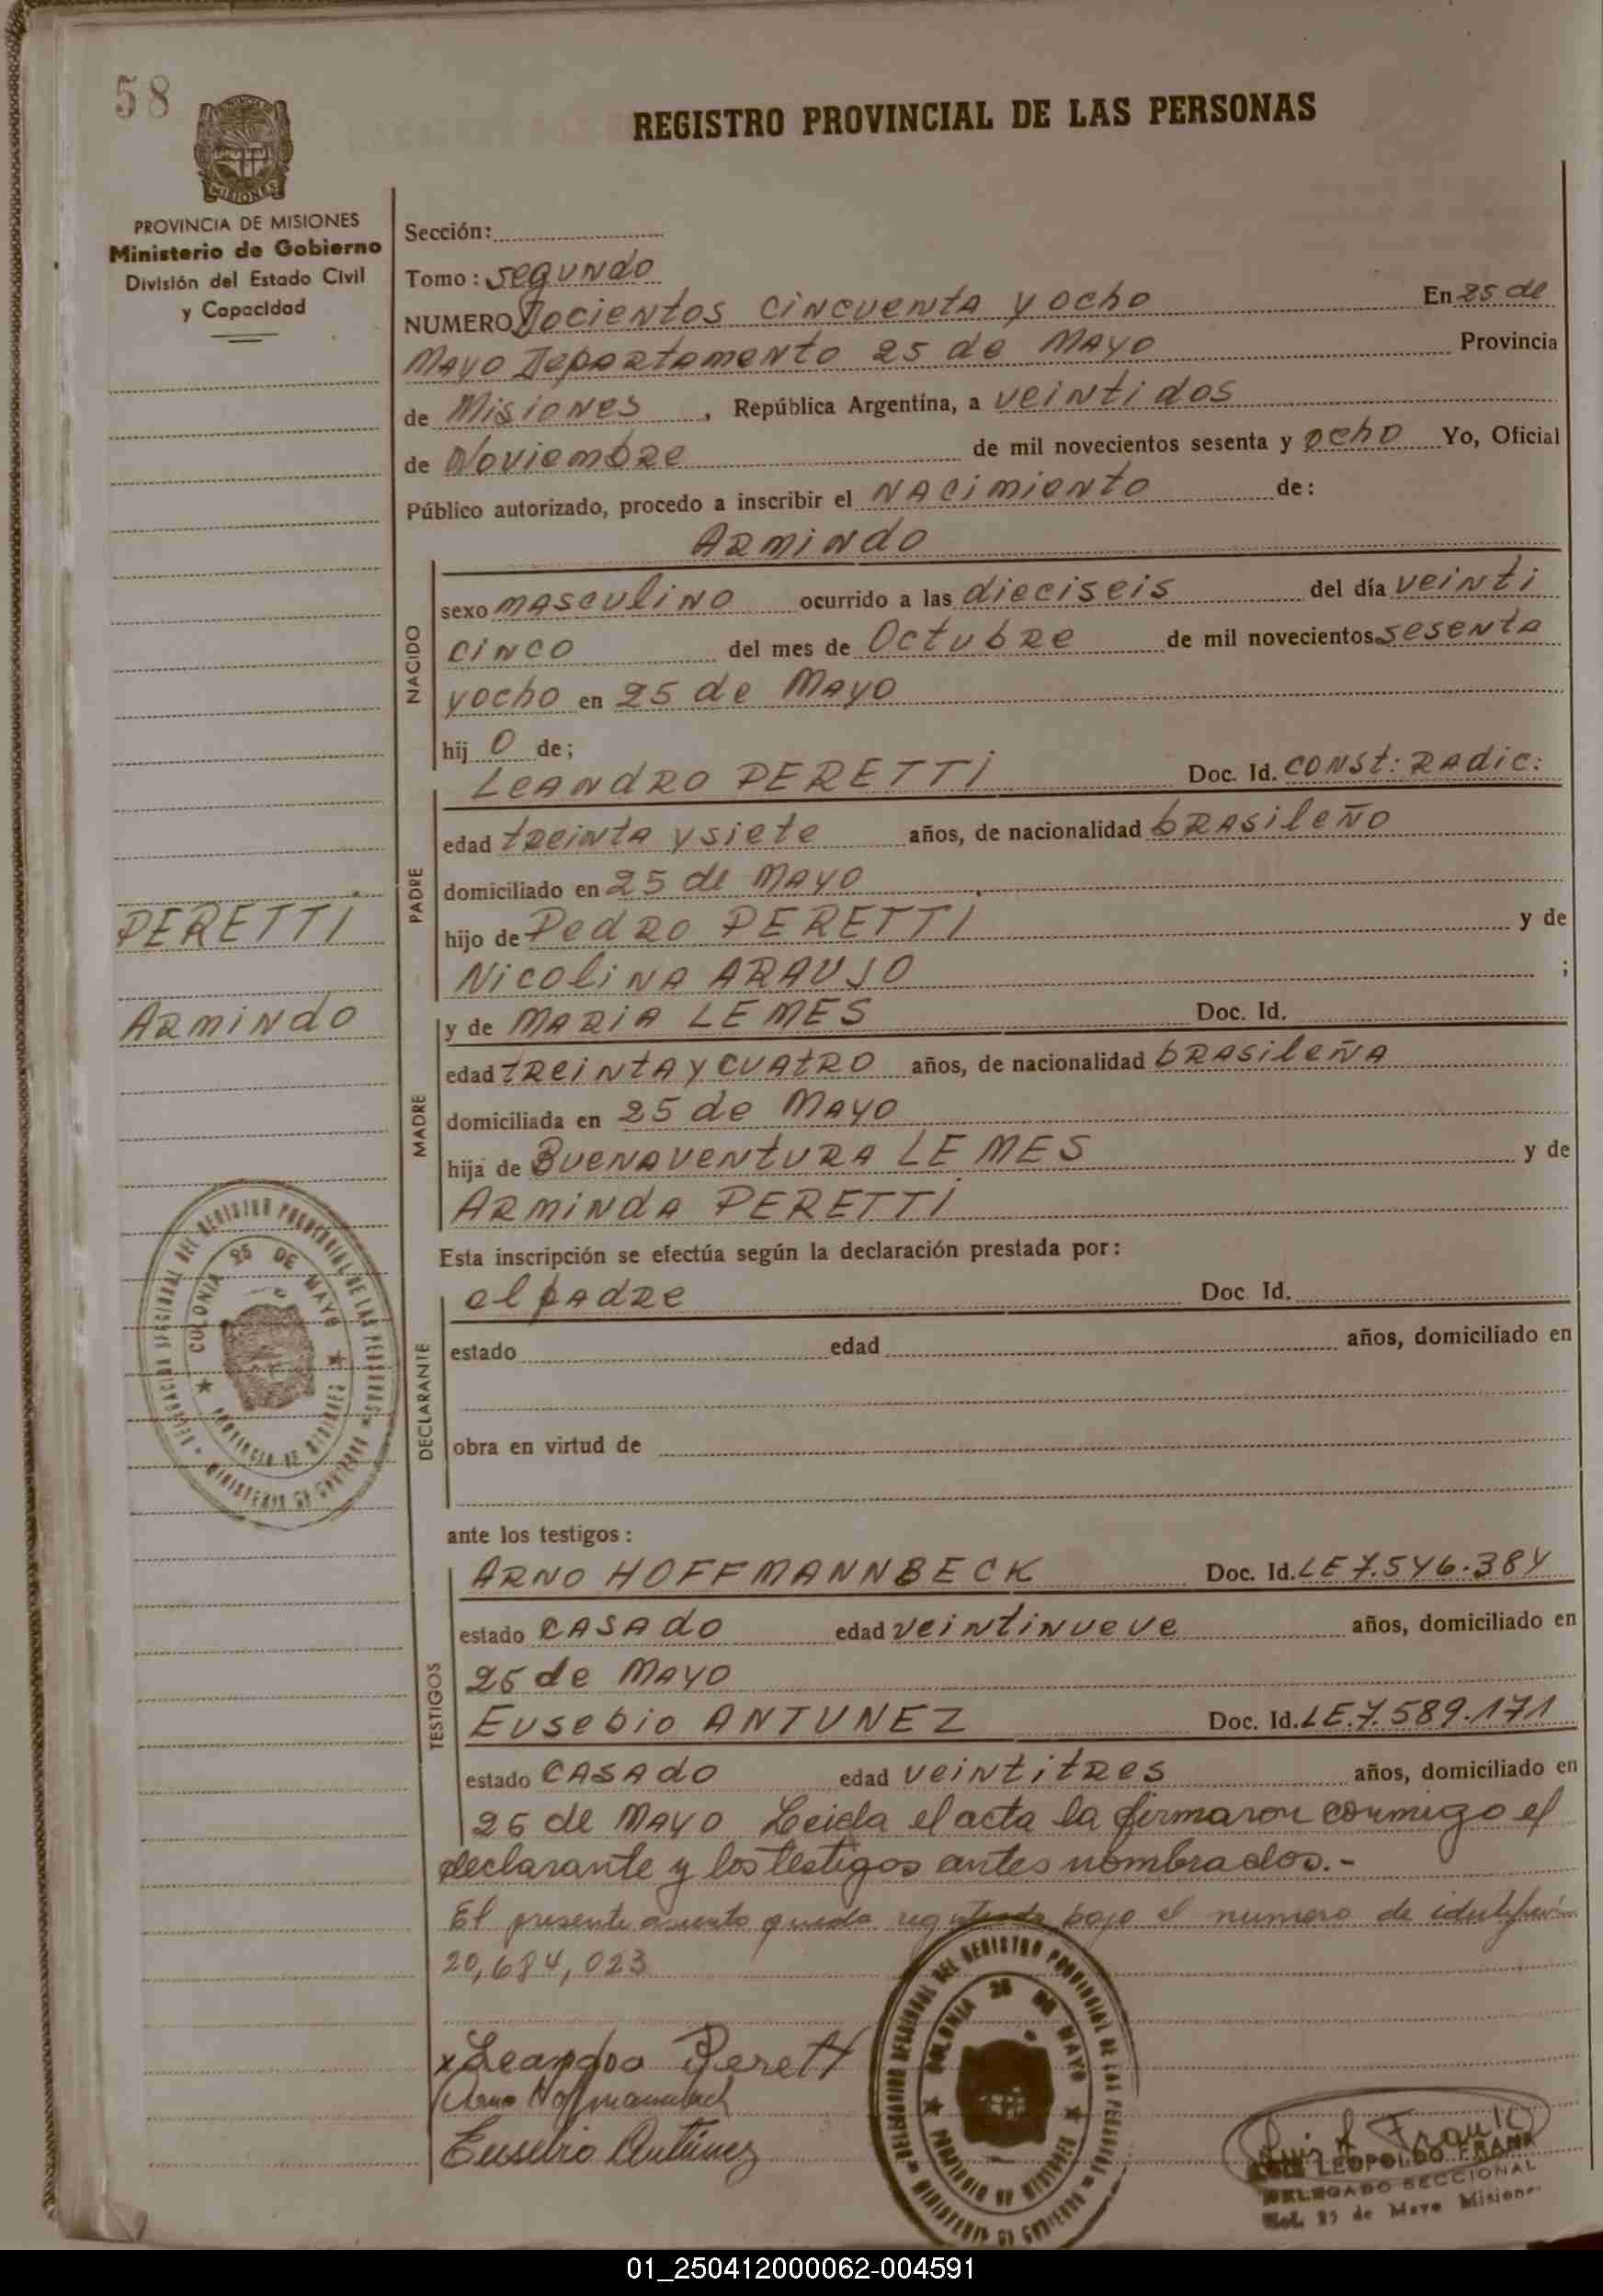 58
REGISTRO PROVINCIAL DE LAS PERSONAS
MISIONES
PROVINCIA DE MISIONES
Ministerio de Gobierno
División del Estado Civil
y Capacidad
Sección:
Tomo: segundo
NUMERO Docientos cincuenta y ocho En 25 de
Mayo Departamento 25 de Mayo Provincia
de Misiones, República Argentina, a veinti dos
de Noviembre de mil novecientos sesenta y ocho Yo, Oficial
Público autorizado, procedo a inscribir el NAcimiento de:
Armindo
NACIDO
sexo masculino ocurrido a las dieciseis del día veinti
cinco del mes de Octubre de mil novecientos sesenta
y ocho en 25 de Mayo
hij o de;
PADRE
Leandro PERETTI Doc. Id. const: Radic:
edad treinta y siete años, de nacionalidad brasileño
domiciliado en 25 de Mayo
hijo de Pedro PERETTI y de
Nicolina ARAUJO ;
PERETTI
Armindo
MADRE
y de MARIA LEMES Doc. Id.
edad treinta y cuatro años, de nacionalidad brasileña
domiciliada en 25 de Mayo
hija de Buenaventura LEMES y de
Arminda PERETTI
Esta inscripción se efectúa según la declaración prestada por:
DECLARANTE
el padre Doc. Id.
estado edad años, domiciliado en
obra en virtud de
DELEGACION SECCIONAL DEL REGISTRO PROVINCIAL DE LAS PERSONAS
MINISTERIO DE GOBIERNO
COLONIA 25 DE MAYO
PROVINCIA DE MISIONES
ante los testigos:
TESTIGOS
Arno HOFFMANNBECK Doc. Id. LE 7.546.384
estado casado edad veintinueve años, domiciliado en
25 de Mayo
Eusebio ANTUNEZ Doc. Id. LE.7.589.171
estado casado edad veintitres años, domiciliado en
25 de Mayo Leida el acta la firmaron conmigo el
declarante y los testigos antes nombrados.-
El presente asiento queda registrado bajo el numero de identificación
20,684,023
x Leandro Peretti
Arno Hoffmannbeck
Eusebio Antúnez
DELEGACION SECCIONAL DEL REGISTRO PROVINCIAL DE LAS PERSONAS
MINISTERIO DE GOBIERNO
COLONIA 25 DE MAYO
PROVINCIA DE MISIONES
Luis L Frank
LUIS LEOPOLDO FRANK
DELEGADO SECCIONAL
Col. 25 de Mayo Misiones
01_250412000062-004591